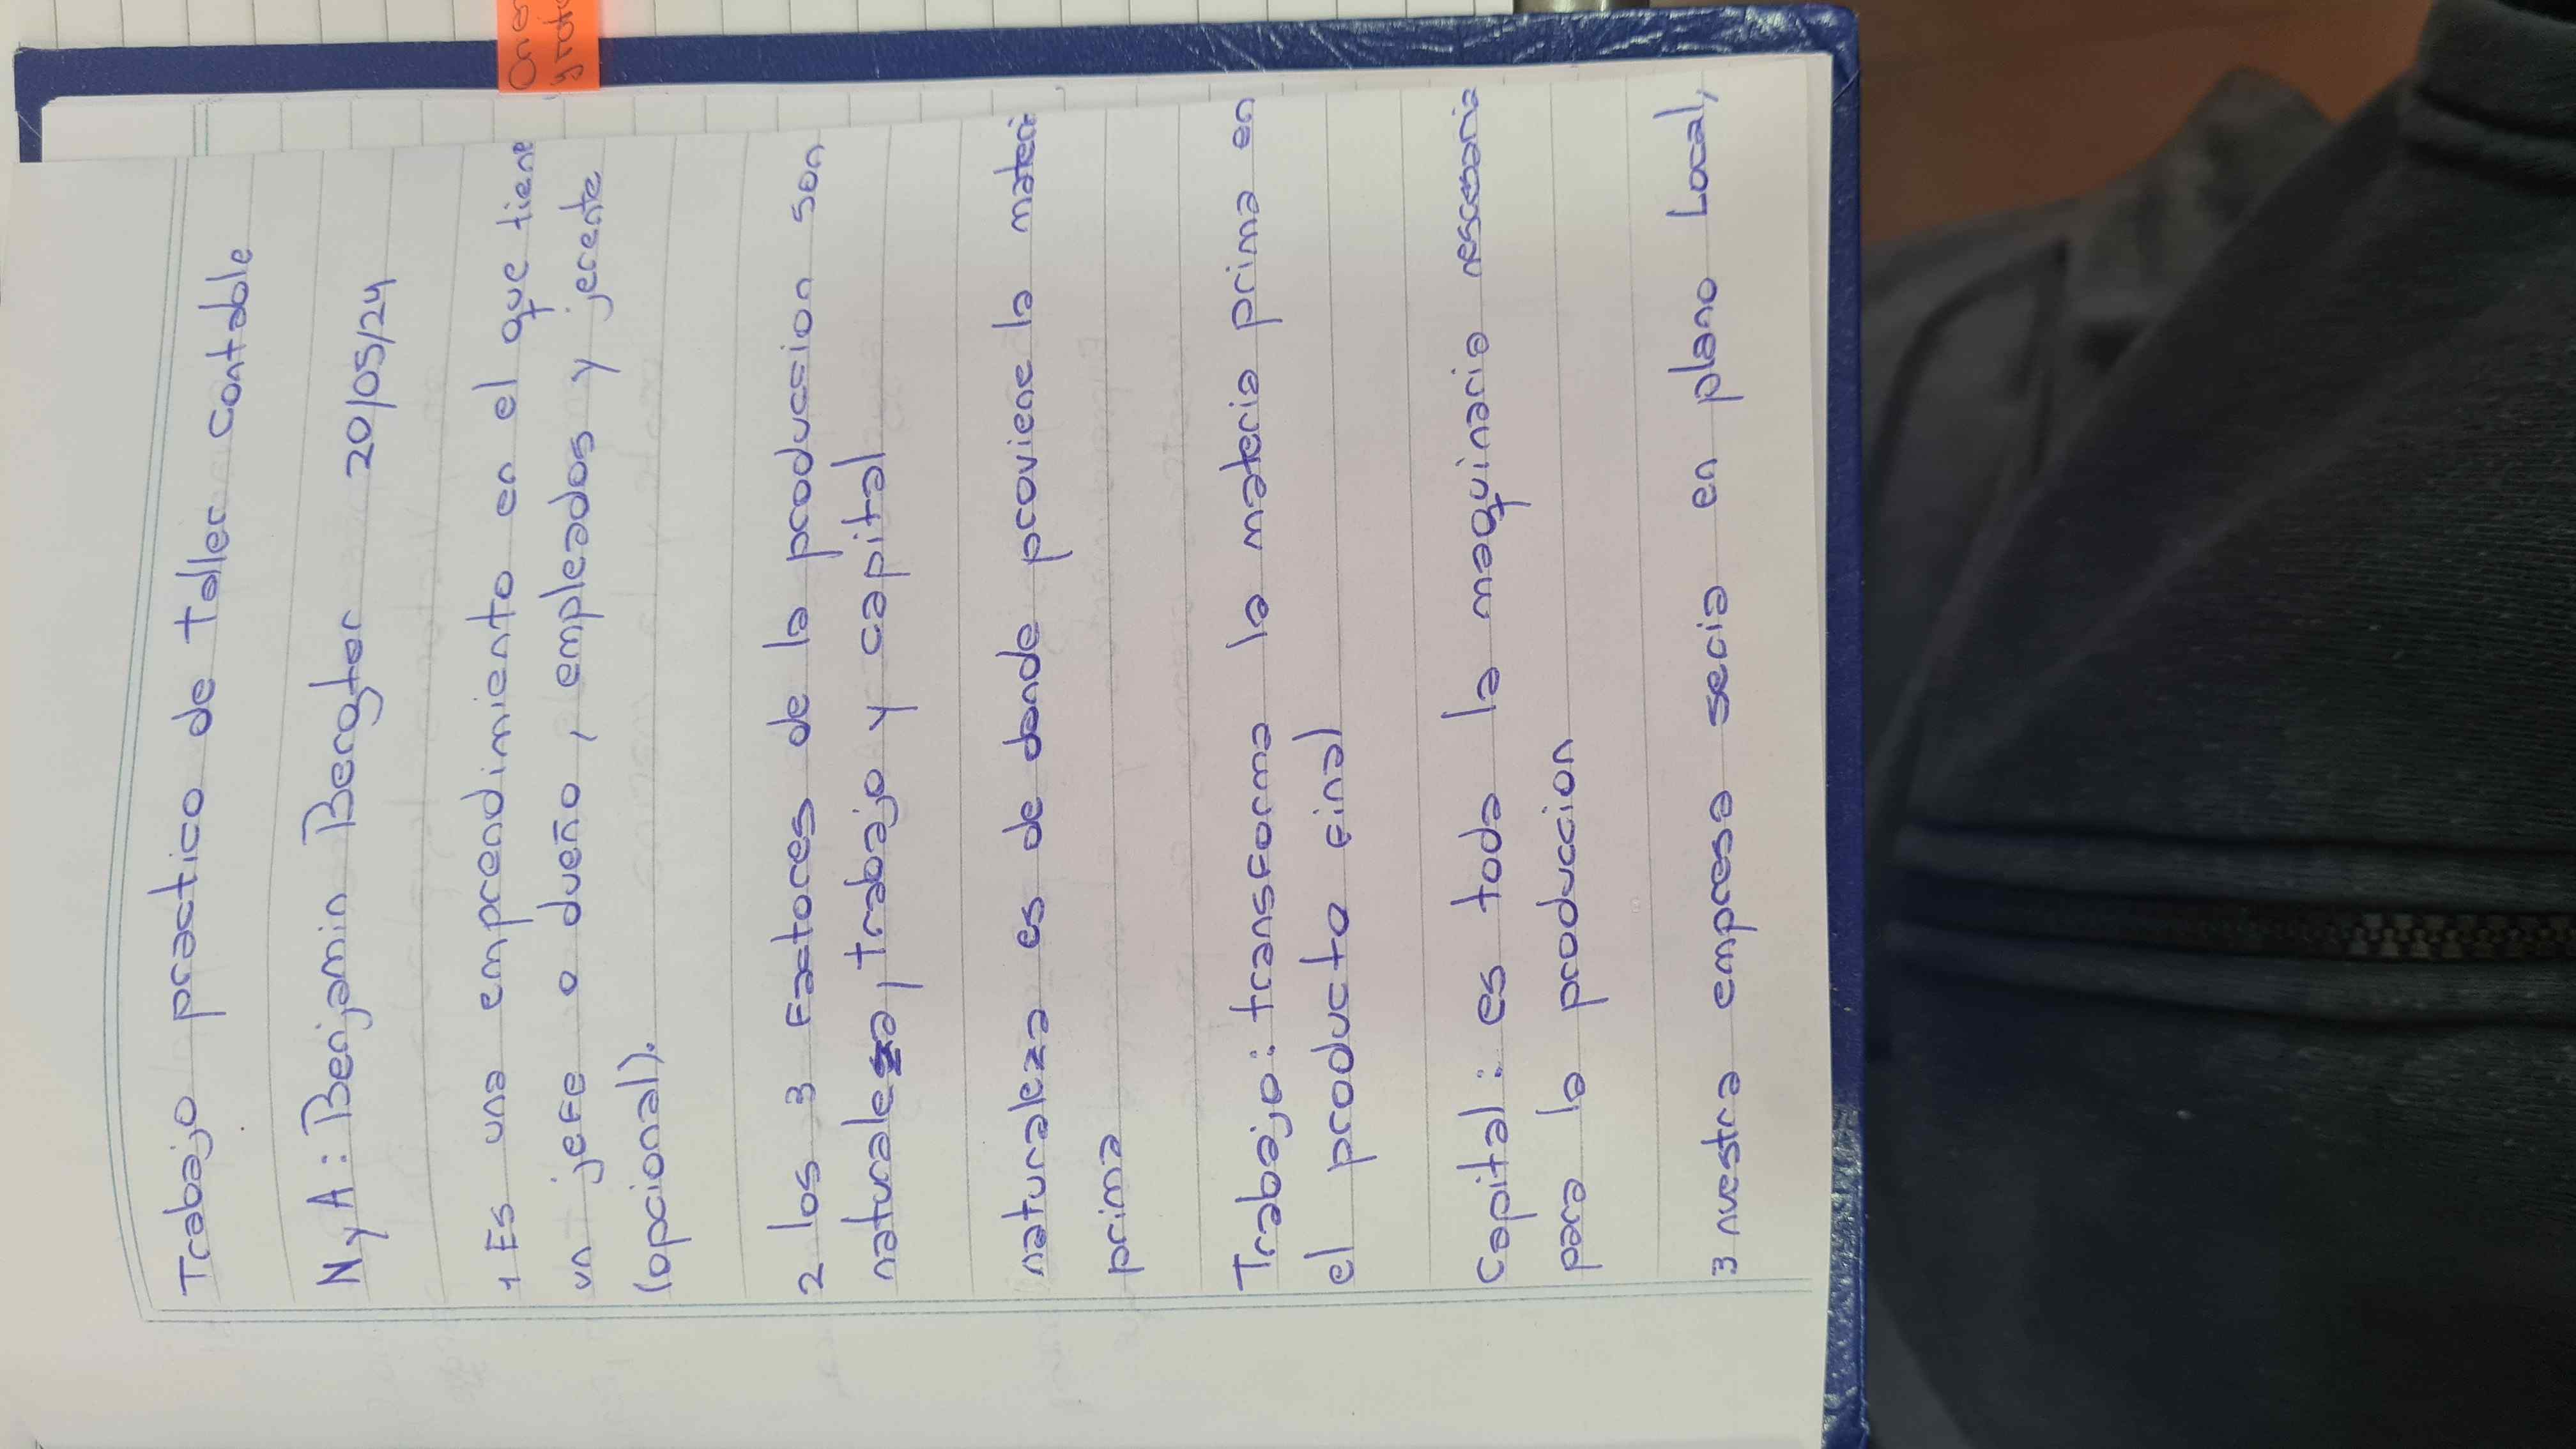 Trabajo practico de Taller contable
N y A: Benjamin Bergtor 20/05/24
1 Es una emprendimiento en el que tiene
un jefe o dueño, empleados y jerente
(opcional).
2 los 3 Factores de la produccion son
naturaleza, trabajo y capital
naturaleza es de donde proviene la materia
prima
Trabajo: transforma la materia prima en
el producto final
Capital: es toda la maquinaria nescesaria
para la produccion
3 nuestra empresa seria en plano Local,